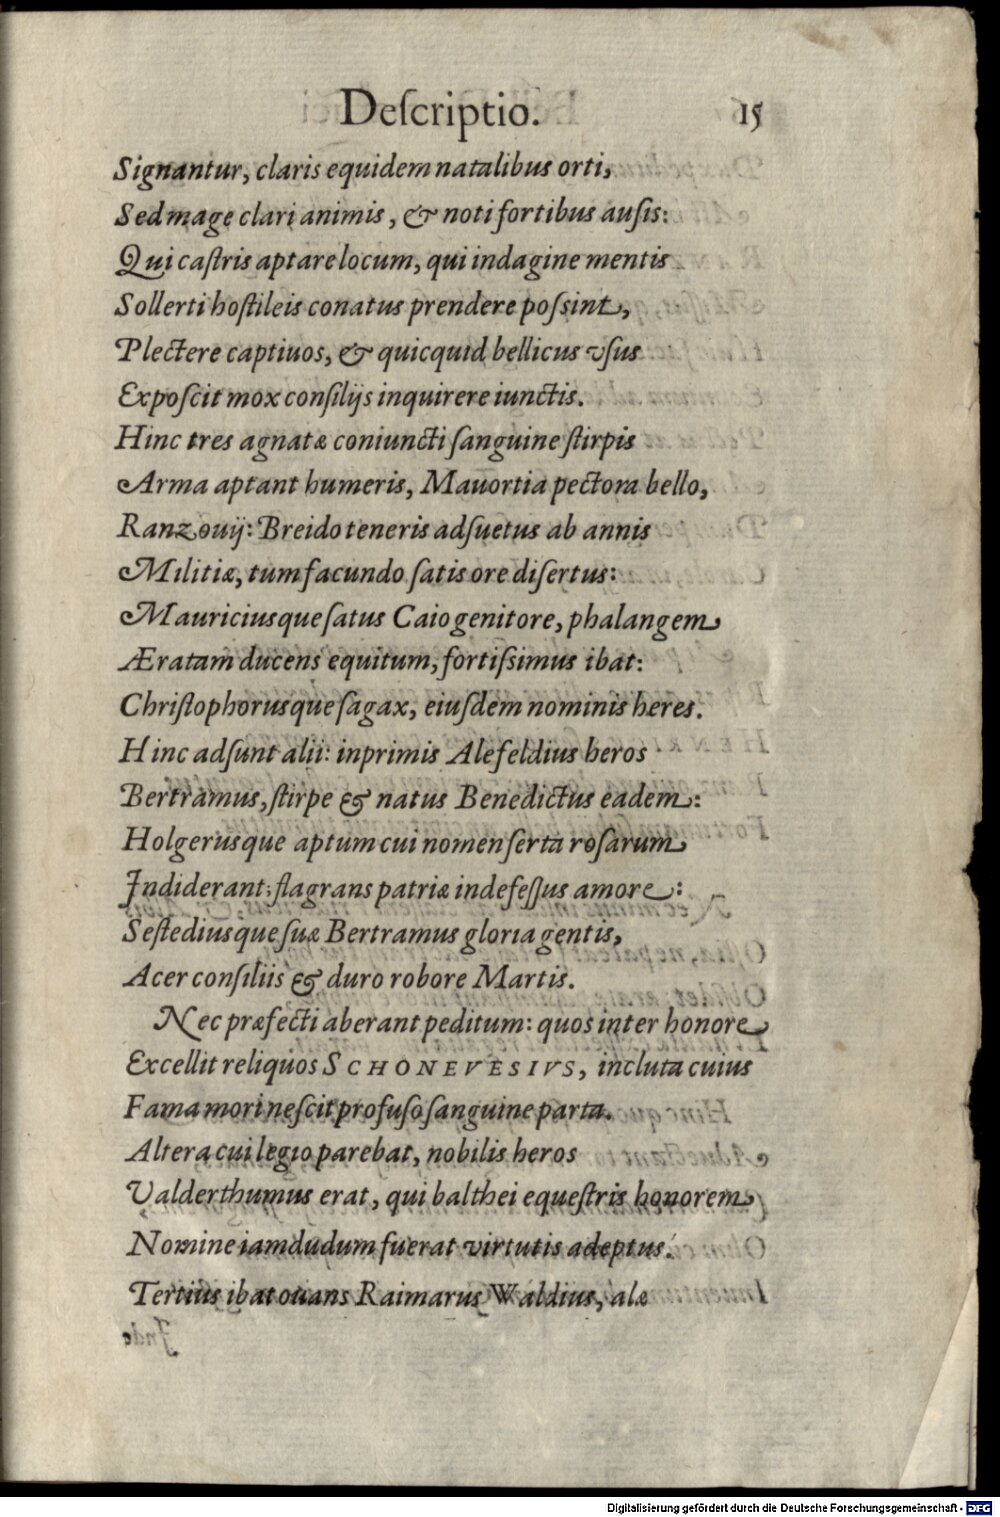 Deſcriptio. 15
Signantur, claris equidem natalibus orti,
Sed mage clari animis, & noti fortibus auſis:
Qui caſtris aptare locum, qui indagine mentis
Sollerti hoſtileis conatus prendere poſsint,
Plectere captiuos, & quicquid bellicus vſus
Expoſcit mox conſilijs inquirere iunctis.
Hinc tres agnatæ coniuncti ſanguine ſtirpis
Arma aptant humeris, Mauortia pectora bello,
Ranzouij: Breido teneris adſuetus ab annis
Militiæ, tum facundo ſatis ore diſertus:
Mauriciusque ſatus Caio genitore, phalangem
Æratam ducens equitum, fortiſsimus ibat:
Chriſtophorusque ſagax, eiuſdem nominis heres.
Hinc adſunt alii: inprimis Alefeldius heros
Bertramus, ſtirpe & natus Benedictus eadem:
Holgerusque aptum cui nomen ſerta roſarum
Indiderant; flagrans patriæ indefeſſus amore:
Seſtediusque ſuæ Bertramus gloria gentis,
Acer conſiliis & duro robore Martis.
Nec præfecti aberant peditum: quos inter honore
Excellit reliquos SCHONEVESIVS, incluta cuius
Fama mori neſcit profuſo ſanguine parta.
Altera cui legio parebat, nobilis heros
Valderthumus erat, qui balthei equeſtris honorem
Nomine iamdudum fuerat virtutis adeptus.
Tertius ibat ouans Raimarus Waldius, alæ
Digitalisierung gefördert durch die Deutsche Forschungsgemeinschaft - DFG